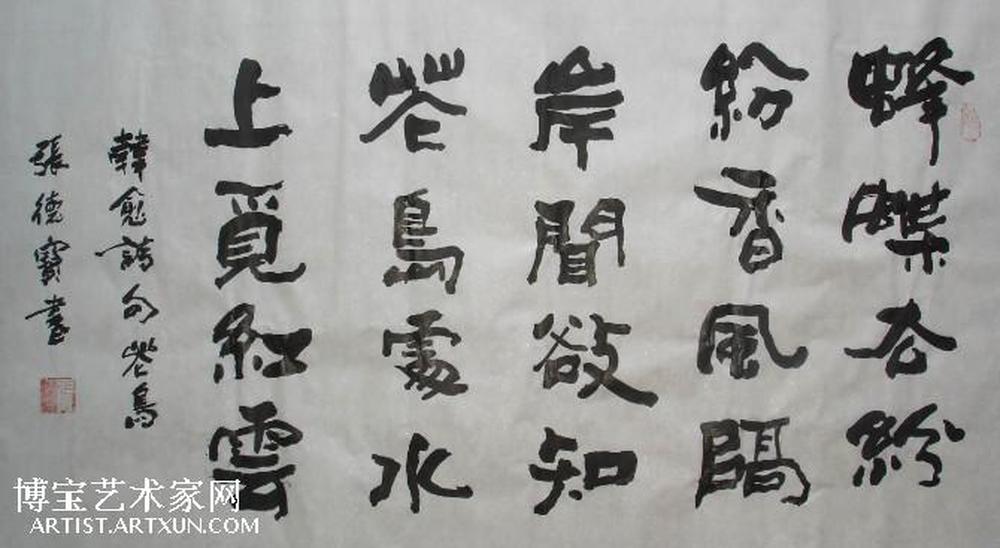 蜂蝶去紛
紛香風隔
岸聞欲知
花島處水
上覓紅雲
韓愈詩句花島
張德寶書
博宝艺术家网
ARTIST.ARTXUN.COM